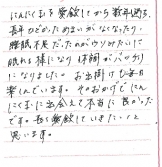 にんにく玉を愛飲してから数年過ぎ、
年のせいかためまいがなくなったり、
睡眠不足だったのがウソみたいに
眠れる様になり 体調がバッチリ
になりました。お出掛けも毎日
楽しんでいます。そのおかげで にん
にく玉に出会えて本当に良かった
です。長く愛飲していきたいと
思います。